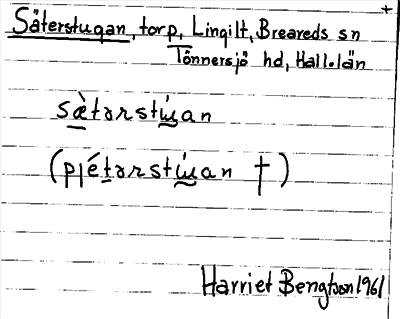 Säterstugan, torp, Lingilt, Breareds sn
Tönnersjö hd, Hall. län
sæ̀tərstɯ́an
(pjétərstɯ́an †)
Harriet Bengtson 1961